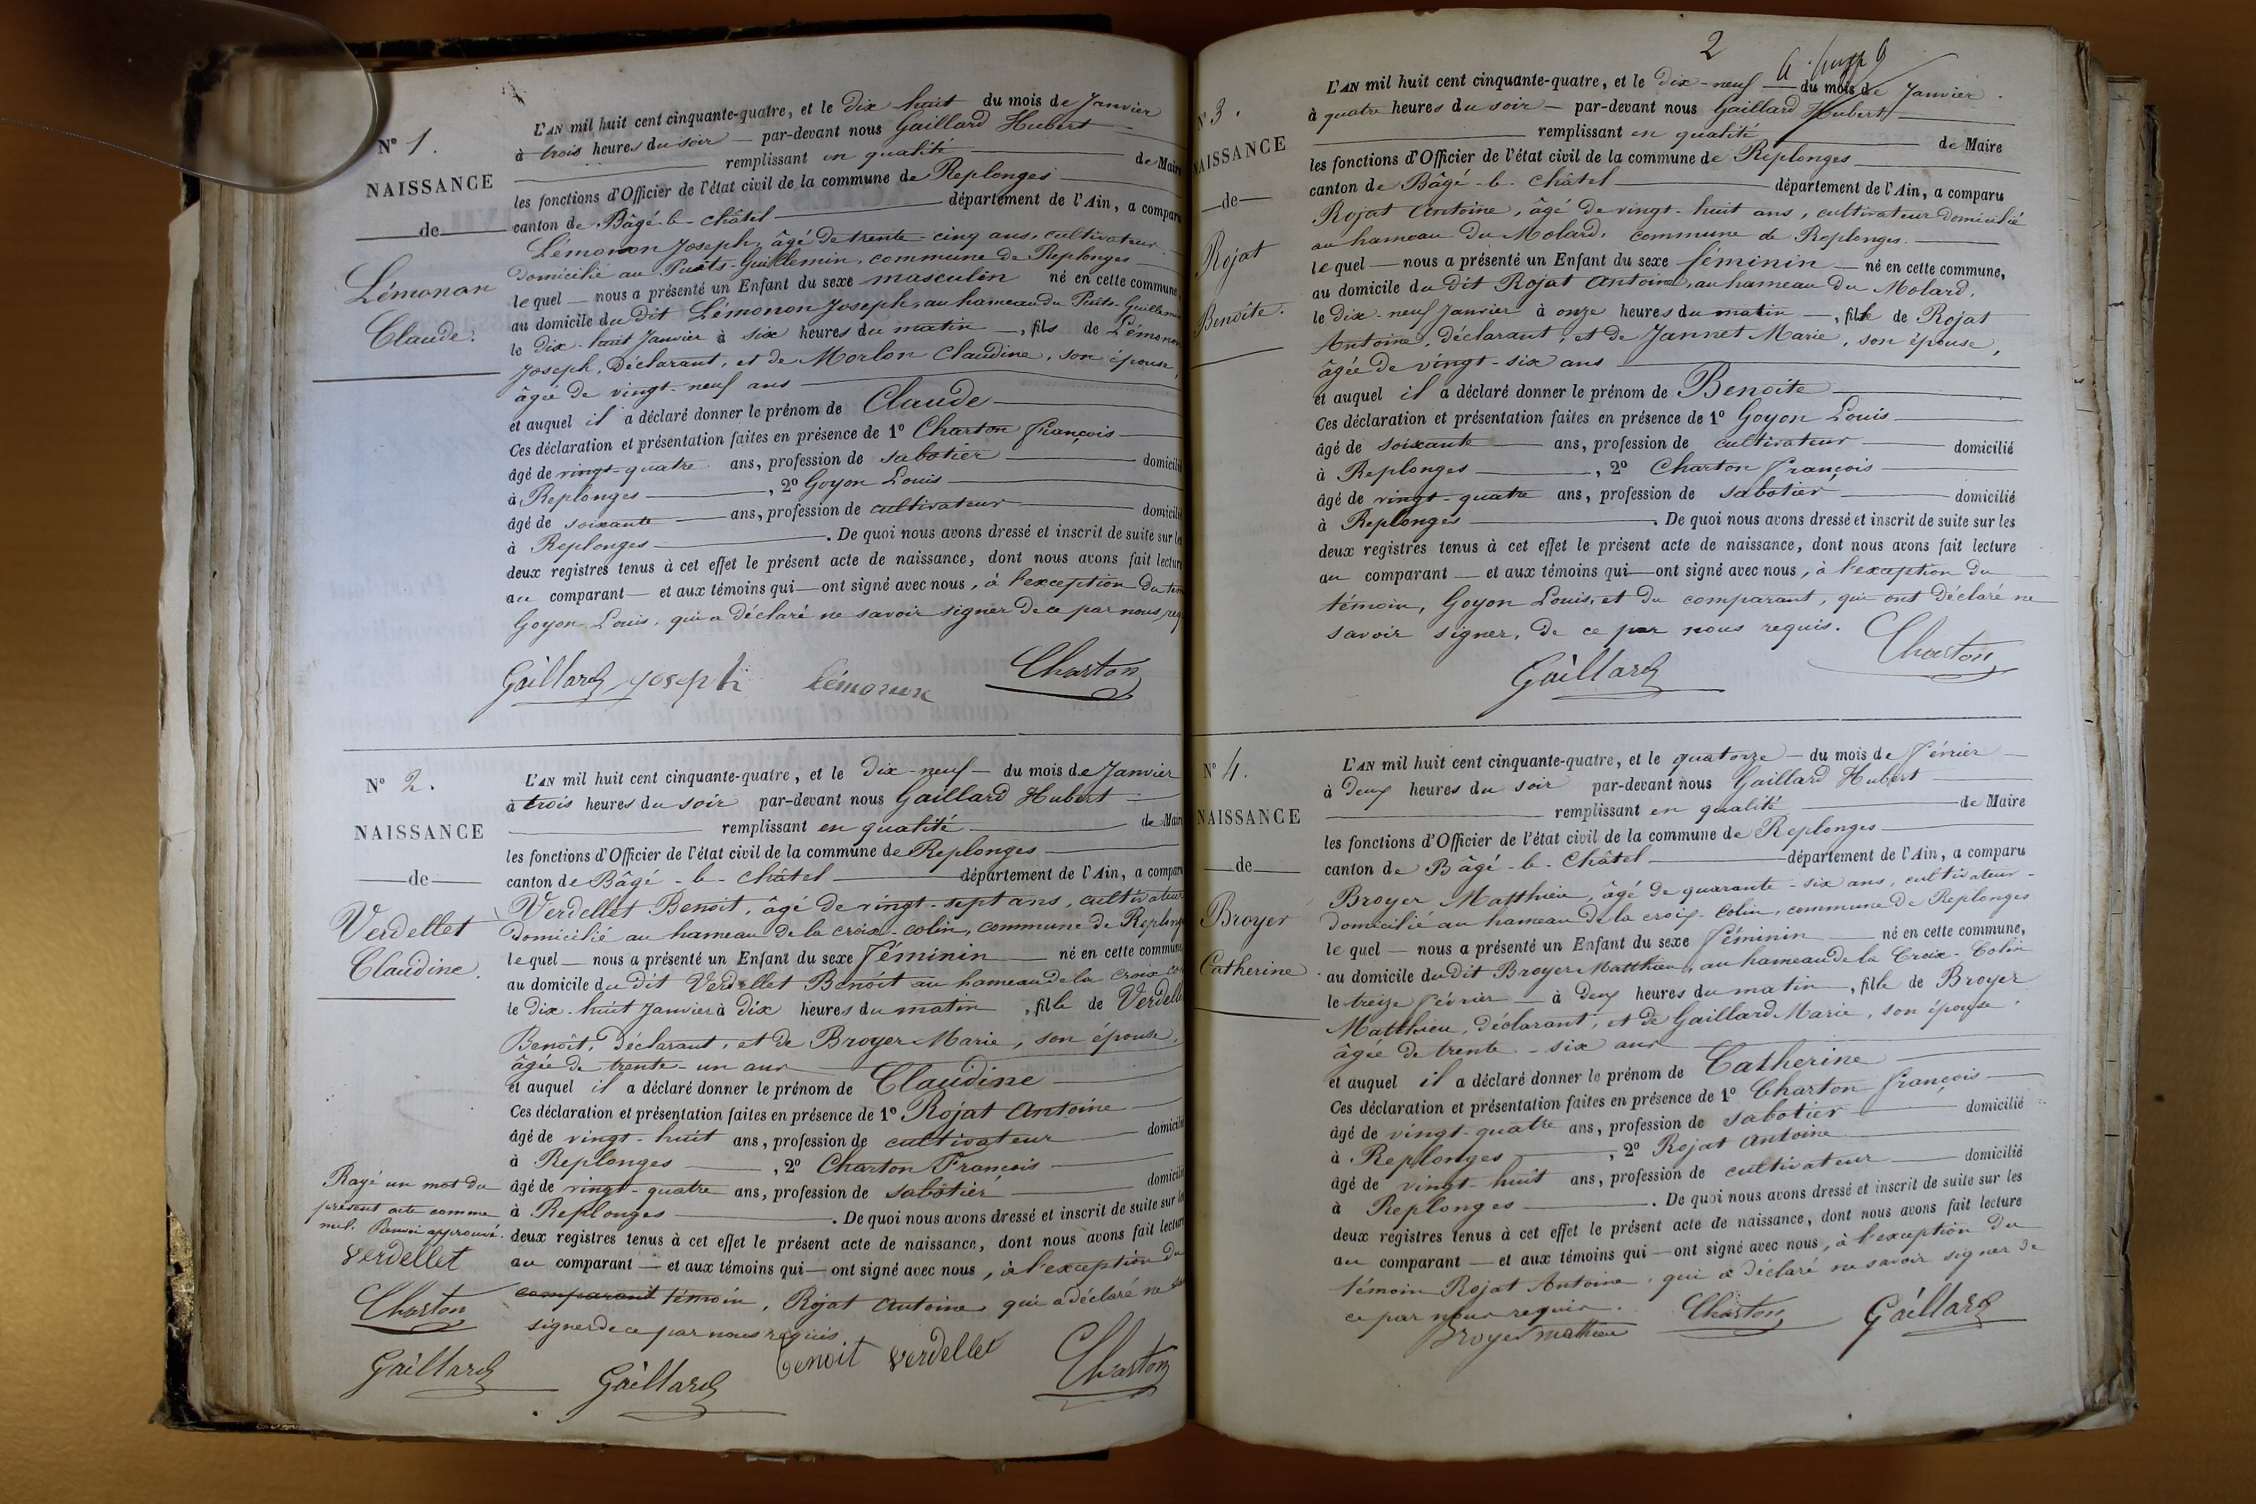 N° 1.
NAISSANCE
de
Lémonon
Claude.
L'AN mil huit cent cinquante-quatre, et le dix huit du mois de Janvier
à trois heures du soir — par-devant nous Gaillard Hubert
remplissant en qualité de Maire
les fonctions d'Officier de l'état civil de la commune de Replonges
canton de Bâgé-le-Châtel département de l'Ain, a comparu
Lémonon Joseph, âgé de trente-cinq ans, cultivateur
domicilié au Puits-Guillemin, commune de Replonges
lequel — nous a présenté un Enfant du sexe masculin né en cette commune,
au domicile du dit Lémonon Joseph, au hameau du Puits-Guillemin
le dix-huit Janvier à six heures du matin —, fils de Lémonon
Joseph, déclarant, et de Morlon Claudine, son épouse,
âgée de vingt-neuf ans
et auquel il a déclaré donner le prénom de Claude
Ces déclaration et présentation faites en présence de 1° Charton François
âgé de vingt-quatre ans, profession de sabotier domicilié
à Replonges , 2° Goyon Louis
âgé de soixante ans, profession de cultivateur domicilié
à Replonges . De quoi nous avons dressé et inscrit de suite sur les
deux registres tenus à cet effet le présent acte de naissance, dont nous avons fait lecture
au comparant — et aux témoins qui — ont signé avec nous, à l'exception du tém
Goyon Louis, qui a déclaré ne savoir signer de ce par nous req
Gaillard Joseph Lémonon Charton
N° 2.
NAISSANCE
de
Verdellet
Claudine.
L'AN mil huit cent cinquante-quatre, et le dix-neuf — du mois de Janvier
à trois heures du soir par-devant nous Gaillard Hubert
remplissant en qualité de Maire
les fonctions d'Officier de l'état civil de la commune de Replonges
canton de Bâgé-le-Châtel département de l'Ain, a comparu
Verdellet Benoit, âgé de vingt-sept ans, cultivateur
domicilié au hameau de la croix-colin, commune de Replonges
lequel — nous a présenté un Enfant du sexe féminin né en cette commune
au domicile du dit Verdellet Benoit au hameau de la croix co
le dix-huit Janvier à dix heures du matin , fille de Verdelle
Benoît, déclarant, et de Broyer Marie, son épouse,
âgée de trente-un ans
et auquel il a déclaré donner le prénom de Claudine
Ces déclaration et présentation faites en présence de 1° Rojat Antoine
âgé de vingt-huit ans, profession de cultivateur domicilié
à Replonges , 2° Charton François
âgé de vingt-quatre ans, profession de sabotier domicilié
à Replonges . De quoi nous avons dressé et inscrit de suite sur les
deux registres tenus à cet effet le présent acte de naissance, dont nous avons fait lecture
au comparant — et aux témoins qui — ont signé avec nous, à l'exception du
comparant témoin, Rojat Antoine, qui a déclaré ne
signer de ce par nous requis.
Rayé un mot du
présent acte comme
nul. Renvoi approuvé.
Verdellet
Charton
Gaillard Gaillard benoit verdellet Charton
2
N° 3.
NAISSANCE
de
Rojat
Benoîte.
L'AN mil huit cent cinquante-quatre, et le dix-neuf — du mois de Janvier
à quatre heures du soir — par-devant nous Gaillard Hubert
remplissant en qualité de Maire
les fonctions d'Officier de l'état civil de la commune de Replonges
canton de Bâgé-le-Châtel département de l'Ain, a comparu
Rojat Antoine, âgé de vingt-huit ans, cultivateur domicilié
au hameau du Molard, commune de Replonges.
lequel — nous a présenté un Enfant du sexe féminin — né en cette commune,
au domicile du dit Rojat Antoine, au hameau du Molard,
le dix-neuf Janvier à onze heures du matin —, fille de Rojat
Antoine, déclarant, et de Jannet Marie, son épouse,
âgée de vingt-six ans
et auquel il a déclaré donner le prénom de Benoîte
Ces déclaration et présentation faites en présence de 1° Goyon Louis
âgé de soixante ans, profession de cultivateur domicilié
à Replonges , 2° Charton François
âgé de vingt-quatre ans, profession de sabotier domicilié
à Replonges . De quoi nous avons dressé et inscrit de suite sur les
deux registres tenus à cet effet le présent acte de naissance, dont nous avons fait lecture
au comparant — et aux témoins qui — ont signé avec nous, à l'exception du
témoin, Goyon Louis, et du comparant, qui ont déclaré ne
savoir signer, de ce par nous requis.
Gaillard Charton
N° 4.
NAISSANCE
de
Broyer
Catherine.
L'AN mil huit cent cinquante-quatre, et le quatorze — du mois de Février
à deux heures du soir par-devant nous Gaillard Hubert
remplissant en qualité de Maire
les fonctions d'Officier de l'état civil de la commune de Replonges
canton de Bâgé-le-Châtel département de l'Ain, a comparu
Broyer Matthieu, âgé de quarante-six ans, cultivateur
domicilié au hameau de la croix-colin, commune de Replonges
lequel — nous a présenté un Enfant du sexe féminin né en cette commune,
au domicile du dit Broyer Matthieu, au hameau de la Croix-Colin
le treize février — à deux heures du matin —, fille de Broyer
Matthieu, déclarant, et de Gaillard Marie, son épouse,
âgée de trente-six ans
et auquel il a déclaré donner le prénom de Catherine
Ces déclaration et présentation faites en présence de 1° Charton François
âgé de vingt-quatre ans, profession de sabotier domicilié
à Replonges , 2° Rojat Antoine
âgé de vingt-huit ans, profession de cultivateur domicilié
à Replonges . De quoi nous avons dressé et inscrit de suite sur les
deux registres tenus à cet effet le présent acte de naissance, dont nous avons fait lecture
au comparant — et aux témoins qui — ont signé avec nous, à l'exception du
témoin Rojat Antoine, qui a déclaré ne savoir signer de
ce par nous requis.
Broyer mathieu Charton Gaillard